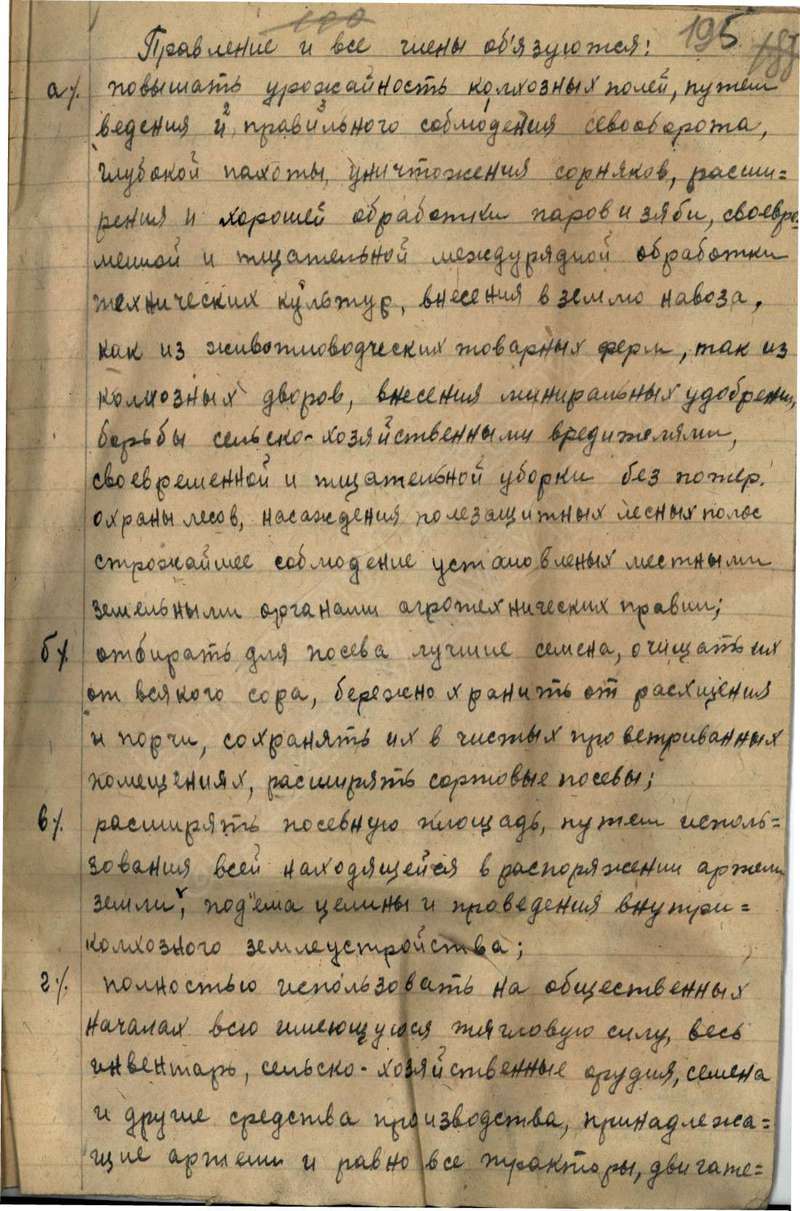 195
Правление и все члены об'язуются:
а/. повышать урожайность колхозных полей, путем
ведения и правильного соблюдения севооборота,
глубокой пахоты, уничтожения сорняков, расши=
рения и хорошей обработки паров и зяби, своевре
менной и тщательной междурядной обработки
технических культур, внесения в землю навоза,
как из животноводческих товарных ферм, так из
колхозных дворов, внесения миниральных удобрении,
борьбы сельско-хозяйственными вредителями,
своевременной и тщательной уборки без потер.
охраны лесов, насаждения полезащитных лесных полос
строжайшее соблюдение установленых местными
земельными органами агротехнических правил;
б/. отбирать для посева лучшие семена, очищать их
от всякого сора, бережно хранить от расхищения
и порчи, сохранять их в чистых проветриванных
помещениях, расширять сортовые посевы;
в/. расширять посевную площадь, путем исполь=
зования всей находящейся в распоряжении артели
земли, под'ема целины и проведения внутри=
колхозного землеустройства;
г/. полностью использовать на общественных
началах всю имеющуюся тягловую силу, весь
инвентарь, сельско-хозяйственные орудия, семена
и другие средства производства, принадлежа=
щие артели и равно все тракторы, двигате=